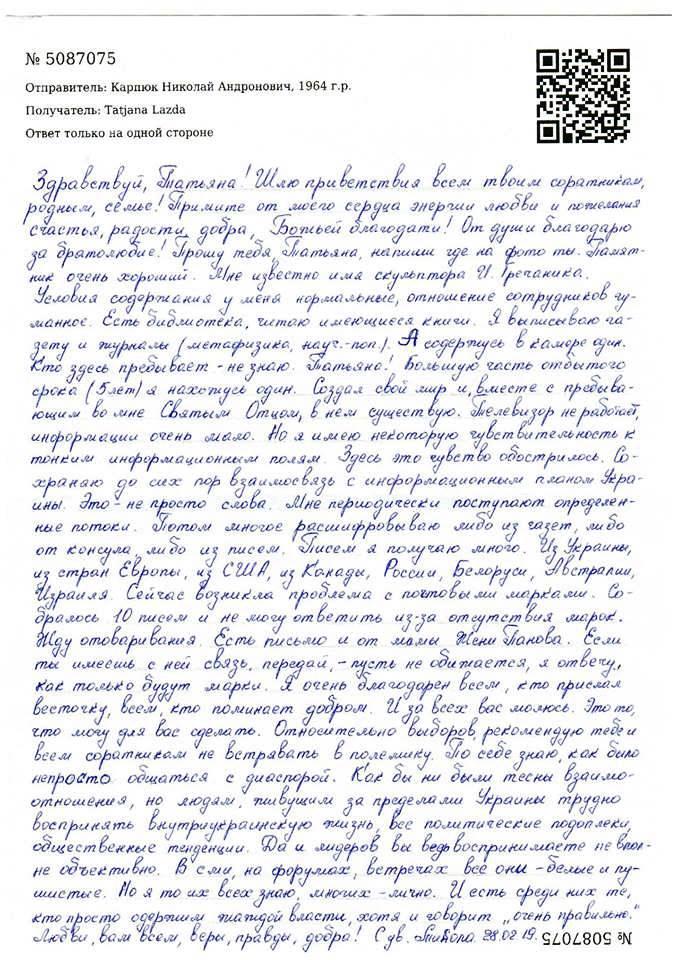 № 5087075
Отправитель: Карпюк Николай Андронович, 1964 г.р.
Получатель: Tatjana Lazda
Ответ только на одной стороне
Здравствуй, Татьяна! Шлю приветствия всем твоим соратникам,
родным, семье! Примите от моего сердца энергии любви и пожелания
счастья, радости, добра, Божьей благодати! От души благодарю
за братолюбие! Прошу тебя, Татьяна, напиши где на фото ты. Памят-
ник очень хороший. Мне известно имя скульптора И. Гречаника.
Условия содержания у меня нормальные, отношение сотрудников гу-
манное. Есть библиотека, читаю имеющиеся книги. Я выписываю га-
зету и журналы (метафизика, науч.-поп.). А содержусь в камере один.
Кто здесь пребывает - не знаю. Татьяна! Большую часть отбытого
срока (5 лет) я нахожусь один. Создал свой мир и, вместе с пребыва-
ющим во мне Святым Отцом, в нем существую. Телевизор не работает,
информации очень мало. Но я имею некоторую чувствительность к
тонким информационным полям. Здесь это чувство обострилось. Со-
храняю до сих пор взаимосвязь с информационным планом Укра-
ины. Это - не просто слова. Мне периодически поступают определен-
ные потоки. Потом многое расшифровываю либо из газет, либо
от консула, либо из писем. Писем я получаю много. Из Украины,
из стран Европы, из США, из Канады, России, Белоруси, Австралии,
Израиля. Сейчас возникла проблема с почтовыми марками. Со-
бралось 10 писем и не могу ответить из-за отсутствия марок.
Жду отоваривания. Есть письмо и от мамы Жени Панова. Если
ты имеешь с ней связь, передай, - пусть не обижается, я отвечу,
как только будут марки. Я очень благодарен всем, кто прислал
весточку, всем, кто поминает добром. И за всех вас молюсь. Это то,
что могу для вас сделать. Относительно выборов, рекомендую тебе и
всем соратникам не встрявать в полемику. По себе знаю, как было
непросто общаться с диаспорой. Как бы ни были тесны взаимо-
отношения, но людям, живущим за пределами Украины трудно
воспринять внутриукраинскую жизнь, все политические подоплеки,
общественные тенденции. Да и лидеров вы ведь воспринимаете не впол-
не объективно. В сми, на форумах, встречах все они - белые и пу-
шистые. Но я то их всех знаю, многих - лично. И есть среди них те,
кто просто одержим жаждой власти, хотя и говорит „очень правильно."
Любви, вам всем, веры, правды, добра! С ув. 28.02.19.
№ 5087075